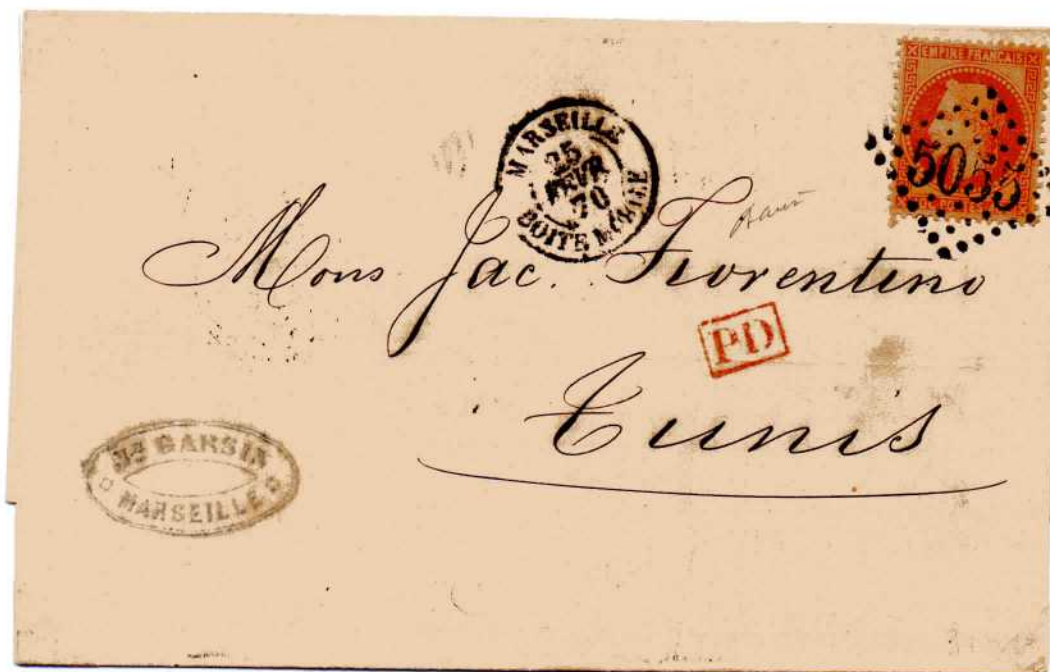 EMPIRE FRANÇAIS
MARSEILLE
25
FEVR
70
BOITE MOBILE
Mons Jac. Fiorentino
PD
Tunis
MARSEILLE